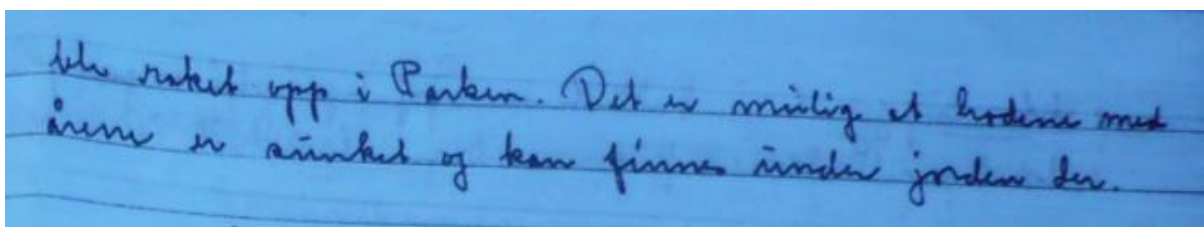 ble raket opp i Parken. Det er mulig at hodene med
årene er sunket og kan finnes under jorden der.